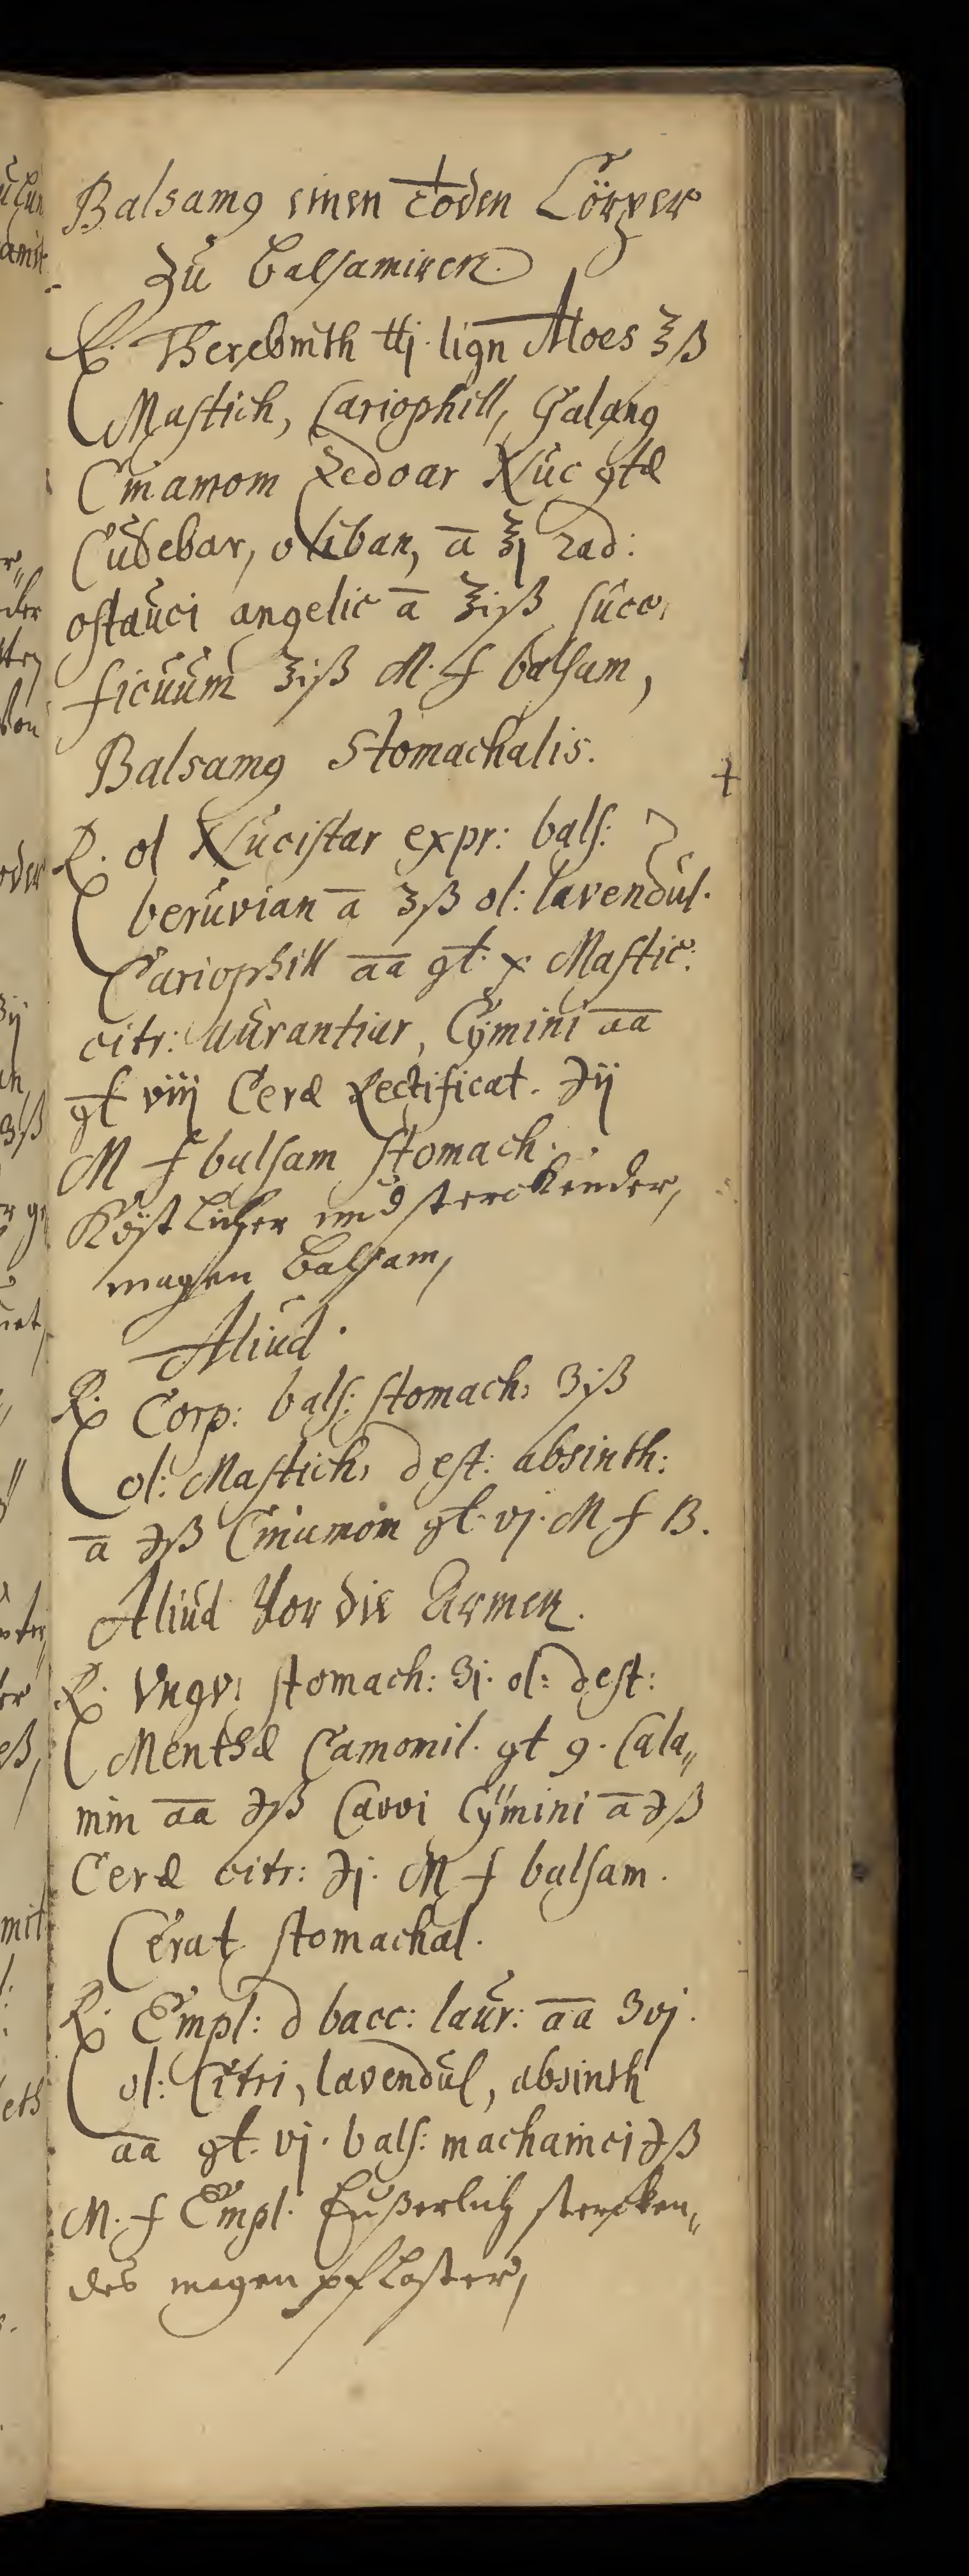 Balsamꝯ einen todten Cörper
zu balsamiren.
℞. Therebinth ℔j. lign Aloes ℥ß
Mastich, Cariophill, Galang
Cinamom Zedoar Nuc ꝯtæ
Cubebar, oliban, a ℥j rad:
ostruci angelic a ℥iß succ,
ficuum ℥iß M. f balsam,
Balsamꝯ Stomachalis.
℞. ol Nucistar expr: bals:
beruvian a ʒß ol: lavendul.
Cariophill aa gt. x Mastic:
citr: aurantiar, Cymini aa
gt viij Ceræ Rectificat. ℈ij
M f balsam stomach.
Köstlicher und sterckender,
magen balsam,
Aliud.
℞ Corp: bals: stomach: ʒiß
ol: Mastich, dest: absinth:
a ℈ß Cinamom gt. vj. M f B.
Aliud Vor die Armen.
℞. Ungv: stomach: ʒj. ol: dest:
Menthæ Camomil. gt 9. Cala„
min aa ℈ß Carvi Cymini a ℈ß
Ceræ citr: ℈j. M f balsam.
Cerat stomachal.
℞. Empl: d bacc: laur: aa ʒvj.
ol: Citri, lavendul, absinth
aa gt. vj. bals: ℈ß
M. f Empl. Eußerlich stercken„
des magen pflaster,